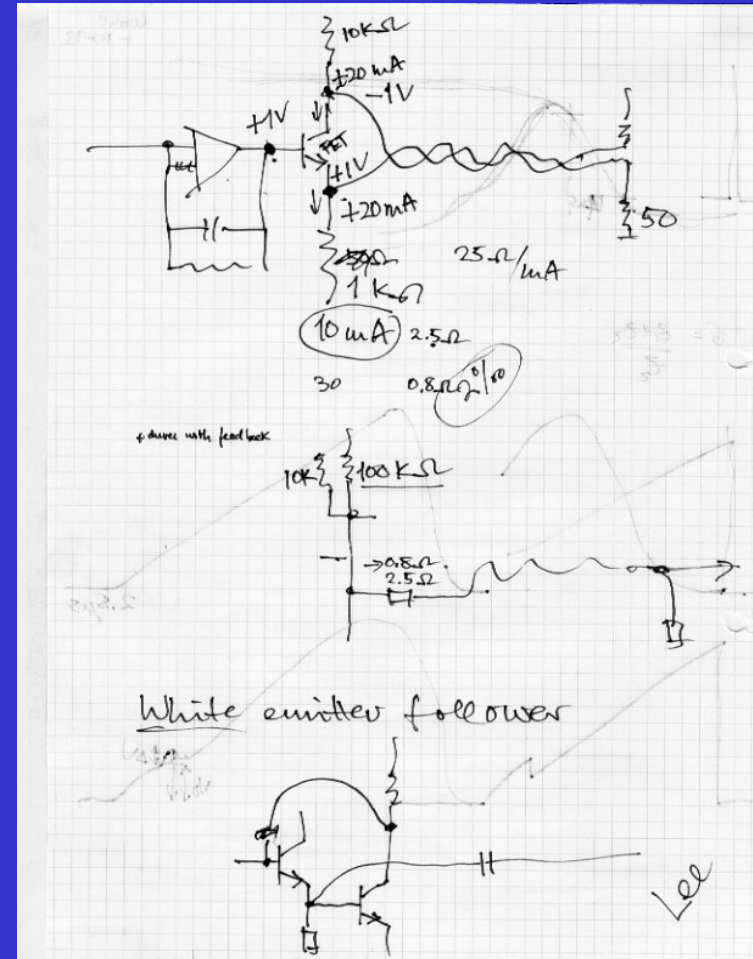 10KΩ
±20 mA
-1V
+1V
FET
+1V
±20 mA
50
25Ω/mA
1 KΩ
10 mA 2.5Ω
30 0.8Ω 2%
with feedback
10K 100KΩ
→0.8Ω
2.5Ω
White emitter follower
Lee